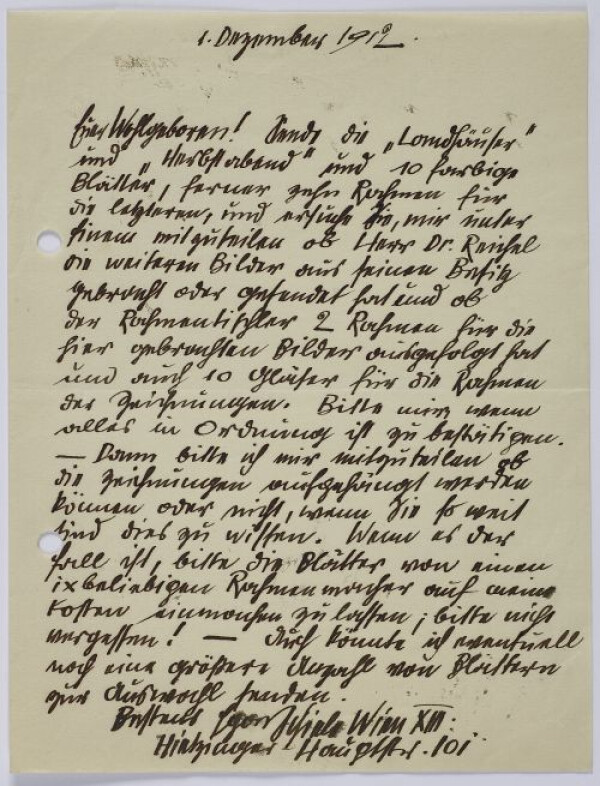 1. Dezember 1912.
Euer Wohlgeboren! Sende die „Landhäuser"
und „Herbstabend" und 10 farbige
Blätter, ferner zehn Rahmen für
die letzteren, und ersuche Sie, mir unter
Einem mitzuteilen ob Herr Dr. Reichel
die weiteren Bilder aus seinen Besitz
gebracht oder gesendet hat und ob
der Rahmentischler 2 Rahmen für die
hier gebrachten Bilder ausgefolgt hat
und auch 10 Gläser für die Rahmen
der Zeichnungen. Bitte mir wenn
alles in Ordnung ist zu bestätigen.
— Dann bitte ich mir mitzuteilen ob
die Zeichnungen aufgehängt werden
können oder nicht, wenn Sie so weit
sind dies zu wissen. Wenn es der
fall ist, bitte die Blätter von einen
ixbeliebigen Rahmenmacher auf meine
Kosten einmachen zu lassen; bitte nicht
vergessen! — Auch könnte ich eventuell
noch eine größere Anzahl von Blättern
zur Auswahl senden.
Bestens Egon Schiele Wien XIII.
Hietzinger Hauptstr. 101